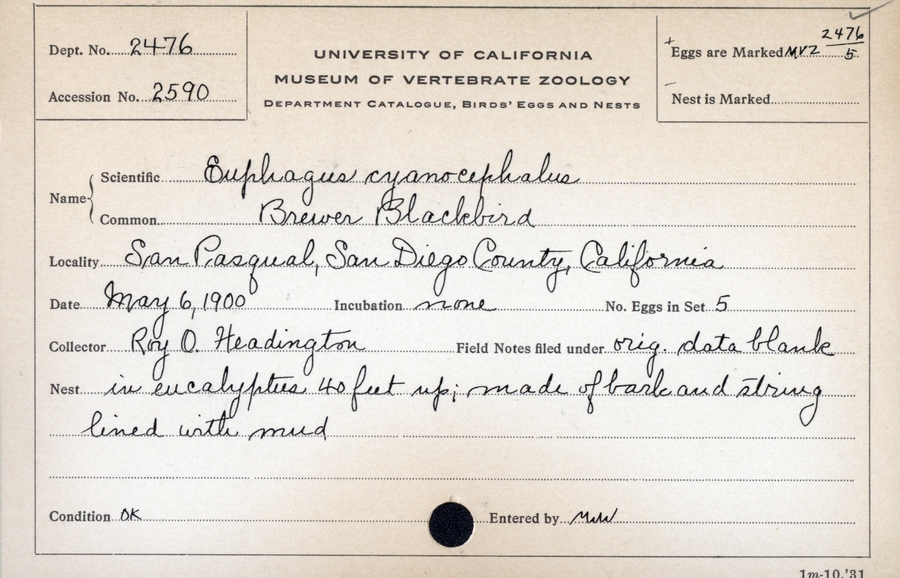 Dept. No. 2476
Accession No. 2590
UNIVERSITY OF CALIFORNIA
MUSEUM OF VERTEBRATE ZOOLOGY
DEPARTMENT CATALOGUE, BIRDS' EGGS AND NESTS
Eggs are Marked MVZ 2476/5
Nest is Marked
Name
Scientific Euphagus cyanocephalus
Common Brewer Blackbird
Locality San Pasqual, San Diego County, California
Date May 6, 1900 Incubation none No. Eggs in Set 5
Collector Roy O. Headington Field Notes filed under orig. data blank
Nest in eucalyptus 40 feet up; made of bark and string
lined with mud
Condition OK Entered by
1m-10,'31